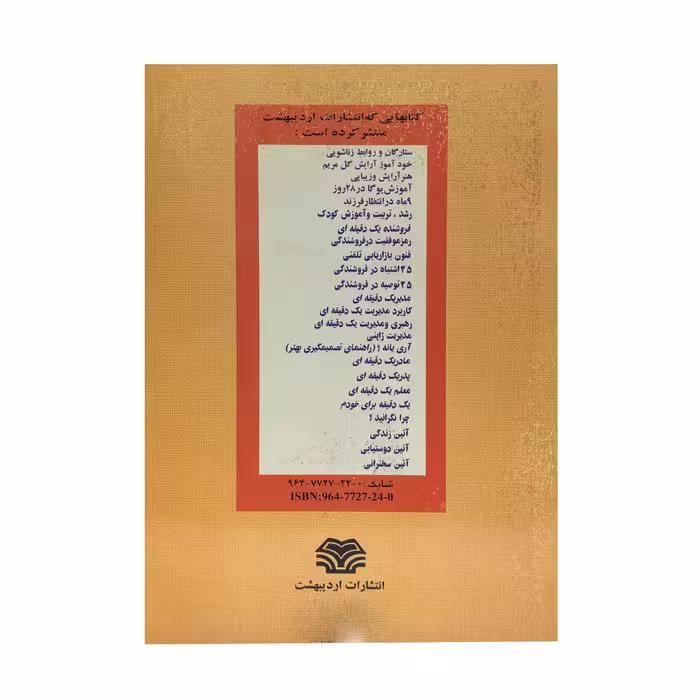 کتابهایی که انتشارات اردیبهشت
منتشر کرده است :
ستارگان و روابط زناشویی
خود آموز آرایش گل مریم
هنر آرایش و زیبایی
آموزش یوگا در ۲۸ روز
۹ ماه در انتظار فرزند
رشد ، تربیت و آموزش کودک
فروشنده یک دقیقه ای
رمز موفقیت در فروشندگی
فنون بازاریابی تلفنی
۲۵ اشتباه در فروشندگی
۲۵ توصیه در فروشندگی
مدیر یک دقیقه ای
کاربرد مدیریت یک دقیقه ای
رهبری و مدیریت یک دقیقه ای
مدیریت ژاپنی
آری یا نه ؟ (راهنمای تصمیمگیری بهتر)
مادر یک دقیقه ای
پدر یک دقیقه ای
معلم یک دقیقه ای
یک دقیقه برای خودم
چرا نگرانید ؟
آئین زندگی
آئین دوستیابی
آئین سخنرانی
شابک : ۰-۲۴-۷۷۲۷-۹۶۴
ISBN:964-7727-24-0
انتشارات اردیبهشت